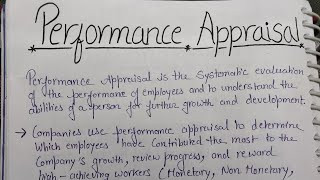 Performance Appraisal
Performance Appraisal is the systematic evaluation
of the performane of employees and to understand the
abilities of a person for further growth and development.
→ Companies use performance appraisal to determine
which employees have contributed the most to the
Company's growth, review progress, and reward
high-achieving workers (Monetary, Non Monetary,